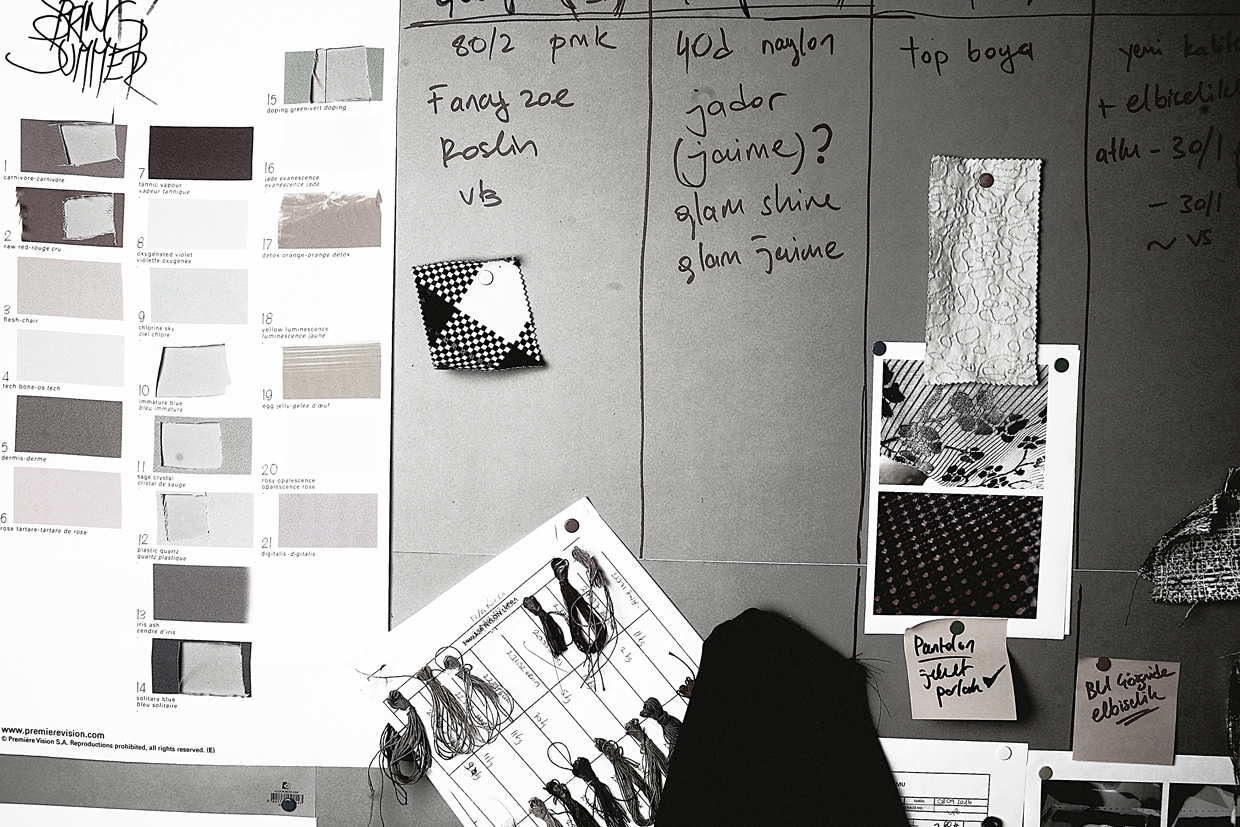 SPRING
SUMMER
1
carnivore-carnivore
2
raw red-rouge cru
3
flesh-chair
4
tech bone-os tech
5
dermis-derme
6
rose tartare-tartare de rose
7
tannic vapour
vapeur tannique
8
oxygenated violet
violette oxygénée
9
chlorine sky
ciel chlore
10
immature blue
bleu immature
11
sage crystal
cristal de sauge
12
plastic quartz
quartz plastique
13
iris ash
cendre d'iris
14
solitary blue
bleu solitaire
15
doping green-vert doping
16
jade evanescence
evanescence jade
17
detox orange-orange detox
18
yellow luminescence
luminescence jaune
19
egg jelly-gelée d'œuf
20
rosy opalescence
opalescence rose
21
digitalis-digitalis
www.premierevision.com
© Première Vision S.A. Reproductions prohibited, all rights reserved. (E)
80/2 pmk
Fancy zoe
Roslin
vb
40d naylon
jador
(jaime)?
glam shine
glam jaime
top boya
yeni
+ elbiselik
atkı - 30/1
- 30/1
~ vs
Pantolon
jaket
parlak ✓
elbiselik